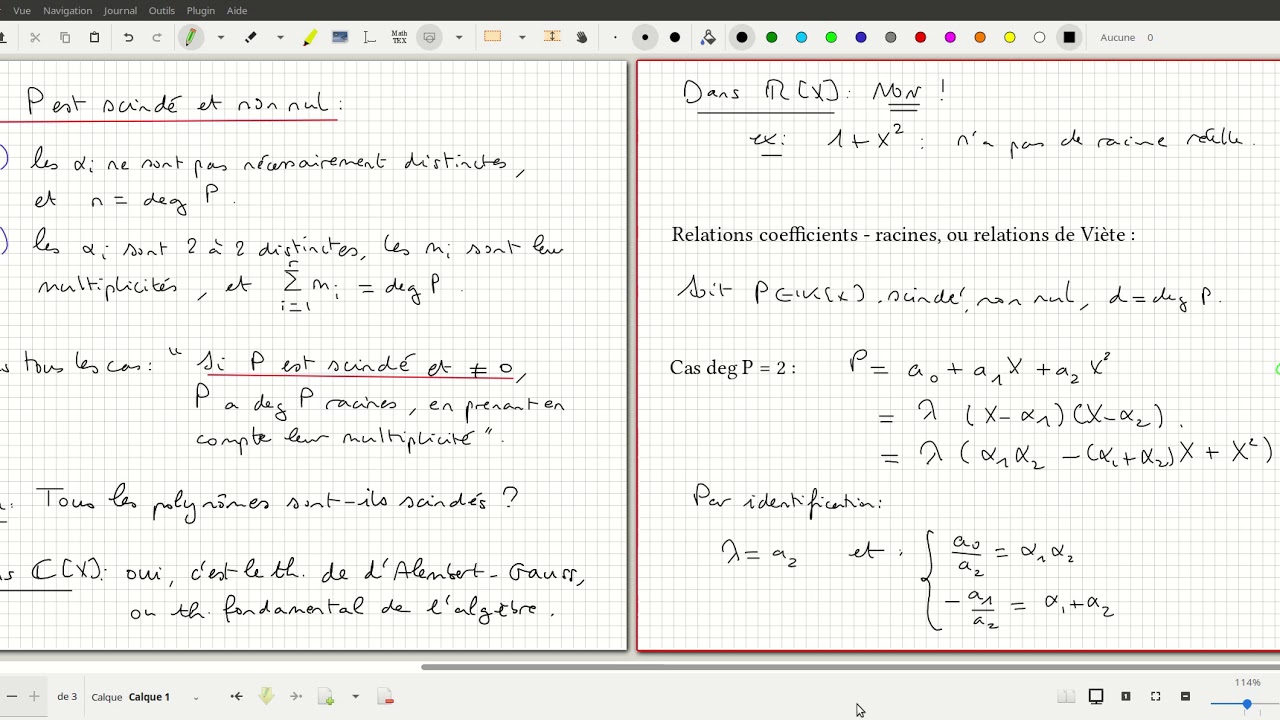 Vue Navigation Journal Outils Plugin Aide
Math
TEX
Aucune 0
P est scindé et non nul :
les αi ne sont pas nécessairement distinctes,
et n = deg P.
les αi sont 2 à 2 distinctes, les mi sont leur
multiplicités, et ∑_{i=1}^{r} mi = deg P.
tous les cas : " Si P est scindé et ≠ 0,
P a deg P racines, en prenant en
compte leur multiplicité ".
Tous les polynômes sont-ils scindés ?
ℂ[X] : oui, c'est le th. de d'Alembert-Gauss,
ou th. fondamental de l'algèbre.
Dans ℝ[X] : NON !
ex : 1 + X² : n'a pas de racine réelle.
Relations coefficients - racines, ou relations de Viète :
Soit P ∈ 𝕂[X], scindé, non nul, d = deg P.
Cas deg P = 2 : P = a₀ + a₁X + a₂X²
= λ (X - α₁)(X - α₂).
= λ (α₁α₂ - (α₁+α₂)X + X²)
Par identification :
λ = a₂ et : { a₀/a₂ = α₁α₂
-a₁/a₂ = α₁+α₂
de 3 Calque Calque 1
114%